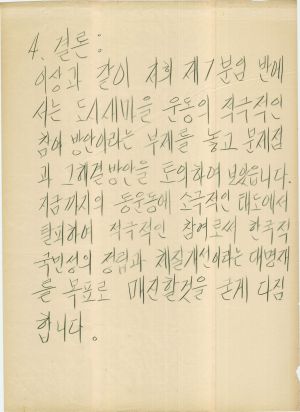 4. 결론 :
이상과 같이 저희 제7분임 반에
서는 도시새마을 운동의 적극적인
참여 방안이라는 부제를 놓고 문제점
과 그해결방안을 토의하여 보았읍니다.
지금까지의 동운동에 소극적인 태도에서
탈피하여 적극적인 참여로서 한국적
국민성의 정립과 체질개선이라는 대명제
를 목표로 매진할것을 굳게 다짐
합니다.